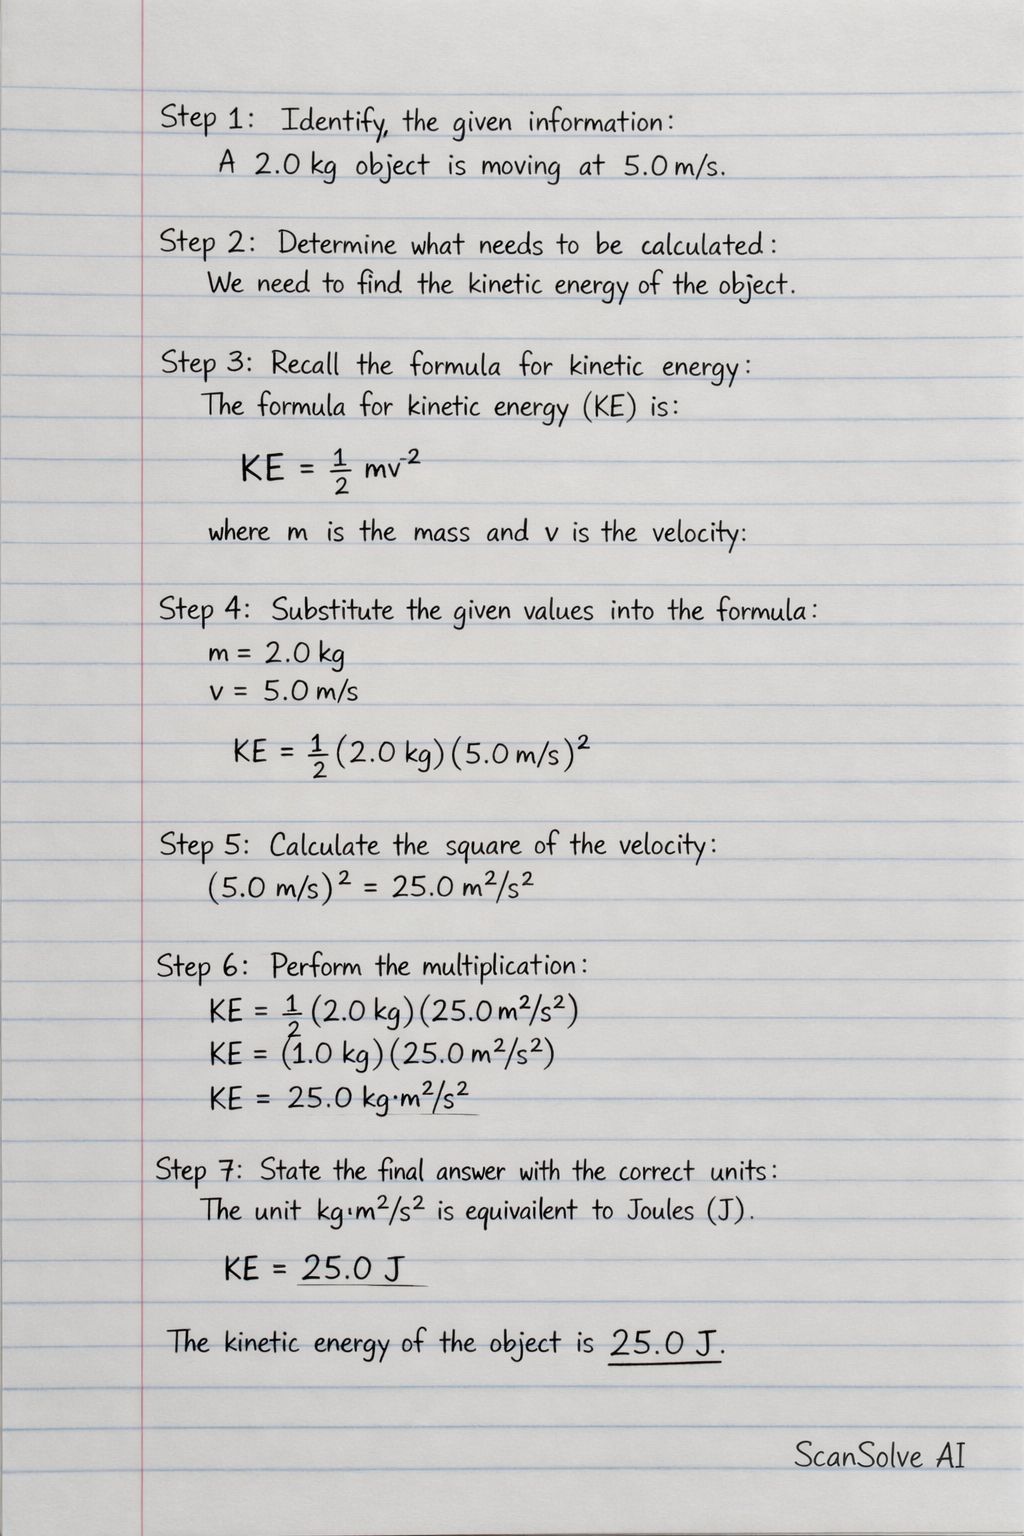 Step 1: Identify, the given information:
A 2.0 kg object is moving at 5.0 m/s.
Step 2: Determine what needs to be calculated:
We need to find the kinetic energy of the object.
Step 3: Recall the formula for kinetic energy:
The formula for kinetic energy (KE) is:
KE = 1/2 mv⁻²
where m is the mass and v is the velocity:
Step 4: Substitute the given values into the formula:
m = 2.0 kg
v = 5.0 m/s
KE = 1/2 (2.0 kg)(5.0 m/s)²
Step 5: Calculate the square of the velocity:
(5.0 m/s)² = 25.0 m²/s²
Step 6: Perform the multiplication:
KE = 1/2 (2.0 kg)(25.0 m²/s²)
KE = (1.0 kg)(25.0 m²/s²)
KE = 25.0 kg·m²/s²
Step 7: State the final answer with the correct units:
The unit kg·m²/s² is equivailent to Joules (J).
KE = 25.0 J
The kinetic energy of the object is 25.0 J.
ScanSolve AI